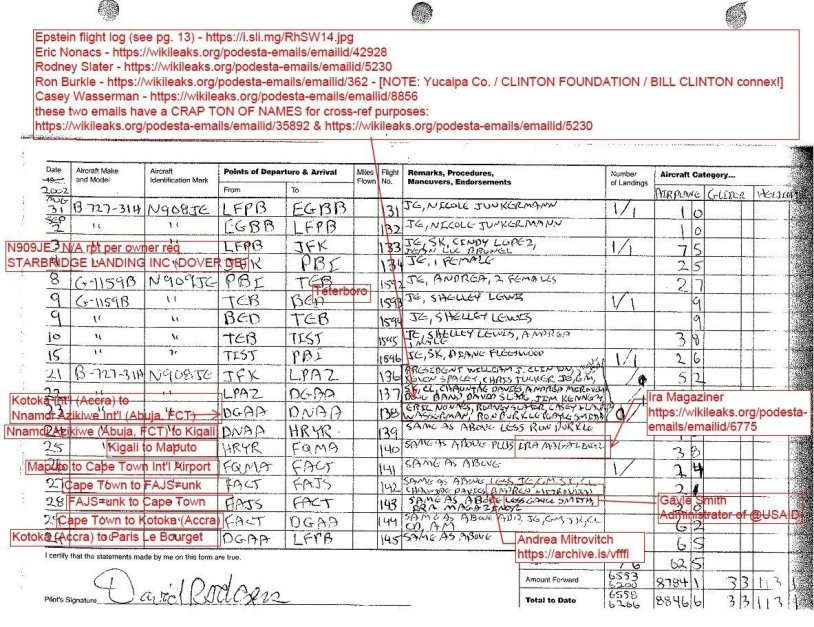 Epstein flight log (see pg. 13) - https://i.sli.mg/RhSW14.jpg
Eric Nonacs - https://wikileaks.org/podesta-emails/emailid/42928
Rodney Slater - https://wikileaks.org/podesta-emails/emailid/5230
Ron Burkle - https://wikileaks.org/podesta-emails/emailid/362 - [NOTE: Yucaipa Co. / CLINTON FOUNDATION / BILL CLINTON connex!]
Casey Wasserman - https://wikileaks.org/podesta-emails/emailid/8856
these two emails have a CRAP TON OF NAMES for cross-ref purposes:
https://wikileaks.org/podesta-emails/emailid/35892 & https://wikileaks.org/podesta-emails/emailid/5230
Date Aircraft Make and Model Aircraft Identification Mark Points of Departure & Arrival Miles Flown Flight No. Remarks, Procedures, Maneuvers, Endorsements Number of Landings Aircraft Category...
2002 From To AIRPLANE GLIDER
AUG 31 B-727-31H N908JE LFPB EGBB 131 JE, NICOLE JUNKERMANN 1/1 1 0
SEP 2 " " EGBB LFPB 132 JE, NICOLE JUNKERMANN 1 0
3 LFPB JFK 133 JE, SK, CINDY LOPEZ, JEAN LUC BRUNEL 1/1 7 5
N909JE - N/A rpt per owner req
STARBRIDGE LANDING INC (DOVER DE)
JFK PBI 134 JE, 1 FEMALE 2 5
8 G-1159B N909JE PBI TEB 1592 JE, ANDREA, 2 FEMALES 2 7
Teterboro
9 G-1159B " TEB BED 1593 JE, SHELLEY LEWIS 1/1 9
9 " " BED TEB 1594 JE, SHELLEY LEWIS 9
10 " " TEB TIST 1595 JE, SHELLEY LEWIS, ANDREA 1 MALE 3 8
15 " " TIST PBI 1596 JE, SK, DIANE FLEETWOOD 1/1 2 6
21 B-727-31H N908JE JFK LPAZ 136 PRESIDENT WILLIAM J. CLINTON, KEVIN SPACEY, CHRIS TUCKER, JE, GM, 5 2
LPAZ DGAA 137 SK, CL, CHAUNTAE DAVIES, ANDREA MITROVICH, DOUG BAND, DAVID SLANG, JIM KENNEY,
Kotoka Int'l (Accra) to
Nnamdi Azikiwe Int'l (Abuja, FCT)
DGAA DNAA 138 ERIC NONACS, RODNEY SLATER, CASEY WASSERMAN, RON BURKLE
Nnamdi Azikiwe (Abuja, FCT) to Kigali
DNAA HRYR 139 SAME AS ABOVE LESS RON BURKLE
Ira Magaziner
https://wikileaks.org/podesta-emails/emailid/6775
25 Kigali to Maputo HRYR FQMA 140 SAME AS ABOVE PLUS IRA MAGAZINER 3 8
Maputo to Cape Town Int'l Airport FQMA FACT 141 SAME AS ABOVE 1/ 2 4
27 Cape Town to FAJS=unk FACT FAJS 142 SAME AS ABOVE LESS JE, GM, SK, CL, CHAUNTAE DAVIES, ANDREA MITROVICH 2
28 FAJS=unk to Cape Town FAJS FACT 143 SAME AS ABOVE LESS GAYLE SMITH, IRA MAGAZINER 2 0
Gayle Smith
Administrator of @USAID
Cape Town to Kotoka (Accra) FACT DGAA 144 SAME AS ABOVE ADD JE, GM, SK, CL, CD, AM 6 2
Kotoka (Accra) to Paris Le Bourget DGAA LFPB 145 SAME AS ABOVE 6 5
Andrea Mitrovitch
https://archive.is/vfffi
I certify that the statements made by me on this form are true.
62 5
Pilot's Signature David Rodgers
Amount Forward 6553 6260 8784 1 3 3 1 1 3 1
Total to Date 6558 6266 8846 6 3 3 1 1 3 1